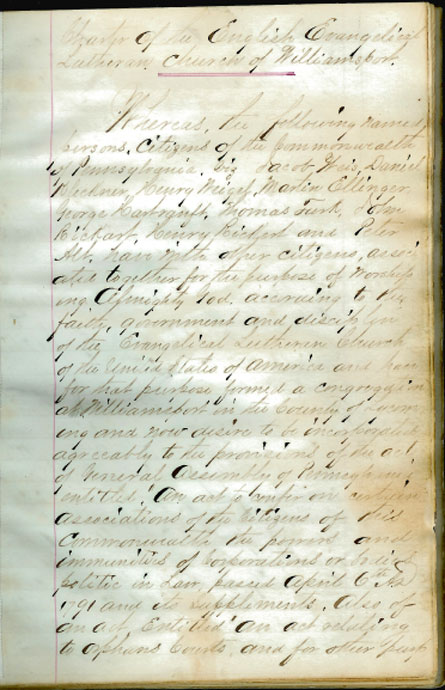 Charter of the English Evangelical
Lutheran Church of Williamsport.
Whereas, the following named
persons, Citizens of the Commonwealth
of Pennsylvania, Viz Jacob Weis, Daniel
Henry Martin Ellinger,
George Thomas Turk, John
Rickart, Henry Rickert and Peter
Alt. have with other citizens, associ
ated together for the purpose of Worship
ing Almighty God. according to the
faith, government and disciplin
of the Evangelical Lutheran Church
of the United States of America and have
for that purpose formed a congregation
at Williamsport in the County of Lycom
ing and now desire to be incorporated
agreeably to the provisions of the act
of General Assembly of Pennsylvania
entitled, An act to confer on certain
associations of the Citizens of this
Commonwealth the powers and
immunities of Corporations or bodies
politic in Law, passed April 6th AD
1791 and its supplements. Also of
an act, Entitled "an act relating
to Orphans Courts, and for other purp